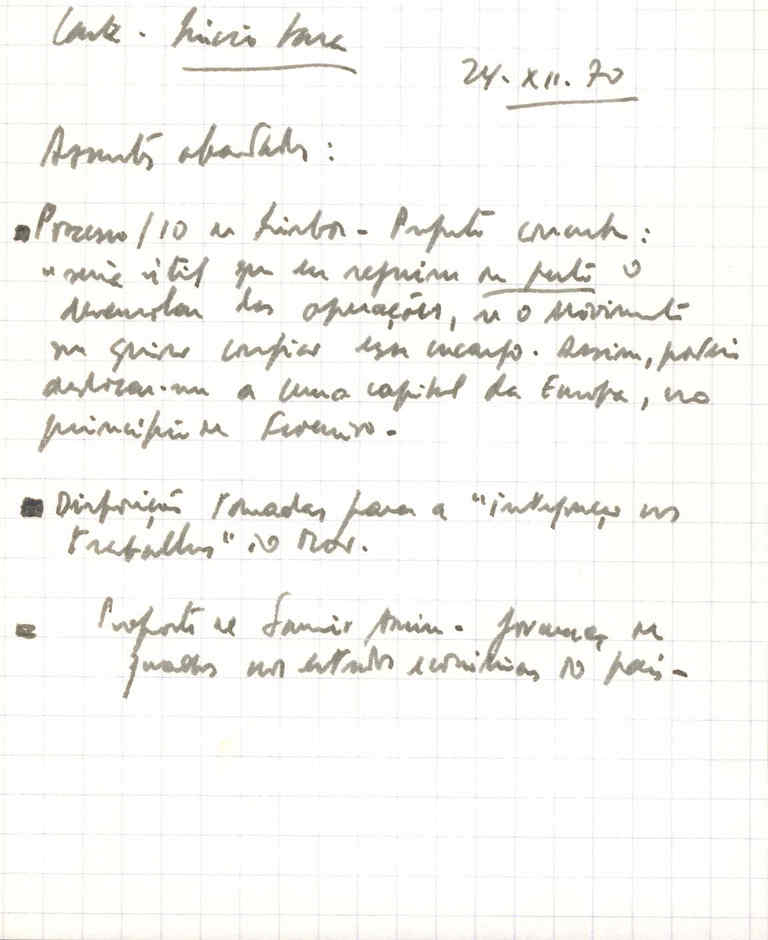 Carta - Lúcio Lara
24.XII.70
Assuntos abordados:
Processo/10 de Lisboa - Proposta concreta:
"seria útil que eu seguisse de perto o
desenrolar das operações, se o Movimento
me quiser confiar esse encargo. Assim, poderia
deslocar-me a uma capital da Europa, no
princípio de Fevereiro.
Disposições tomadas para a "integração nos
trabalhos" do Mov.
Proposta de Samir Amin - formação de
quadros nos estudos económicos do país -